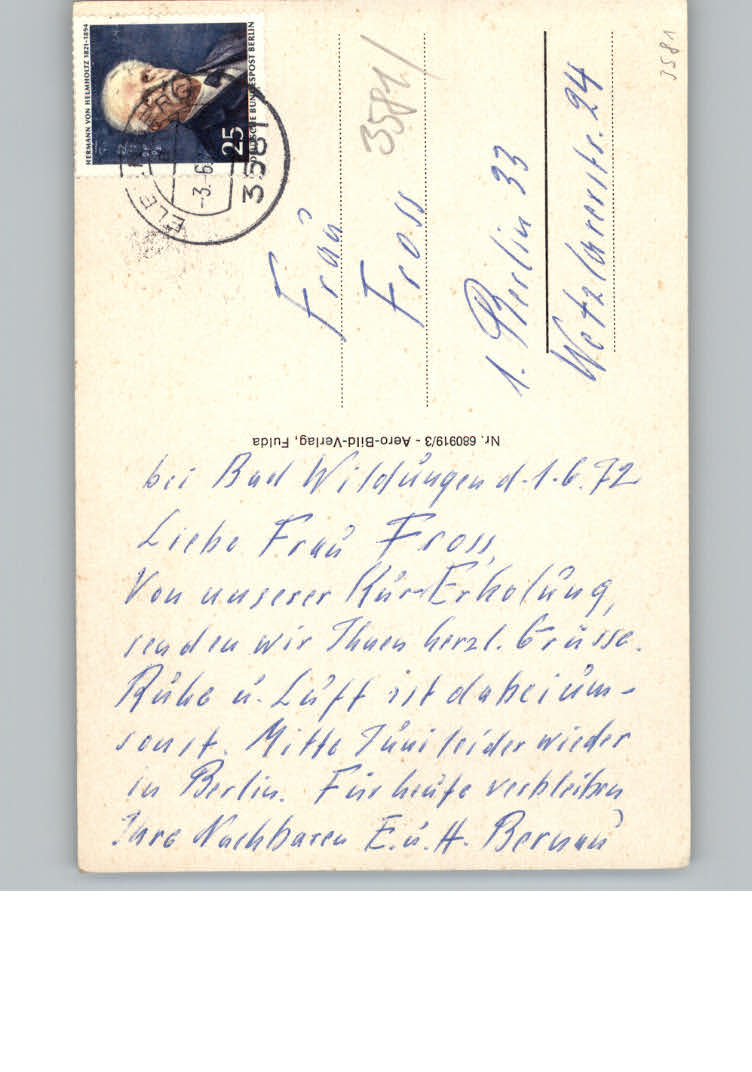 HERMANN VON HELMHOLTZ 1821-1894
25
DEUTSCHE BUNDESPOST BERLIN
-3.-6.
3581
3581/
3581
Frau
Fross
1. Berlin 33
Wetzlarerstr. 24
Nr. 680919/3 - Aero-Bild-Verlag, Fulda
bei Bad Wildungen d. 1.6.72
Liebe Frau Fross,
Von unserer Kur-Erholung,
senden wir Ihnen herzl. Grüsse.
Ruhe u. Luft ist dabei um-
sonst. Mitte Juni leider wieder
in Berlin. Für heute verbleiben
Ihre Nachbaren E. u. H. Bernau